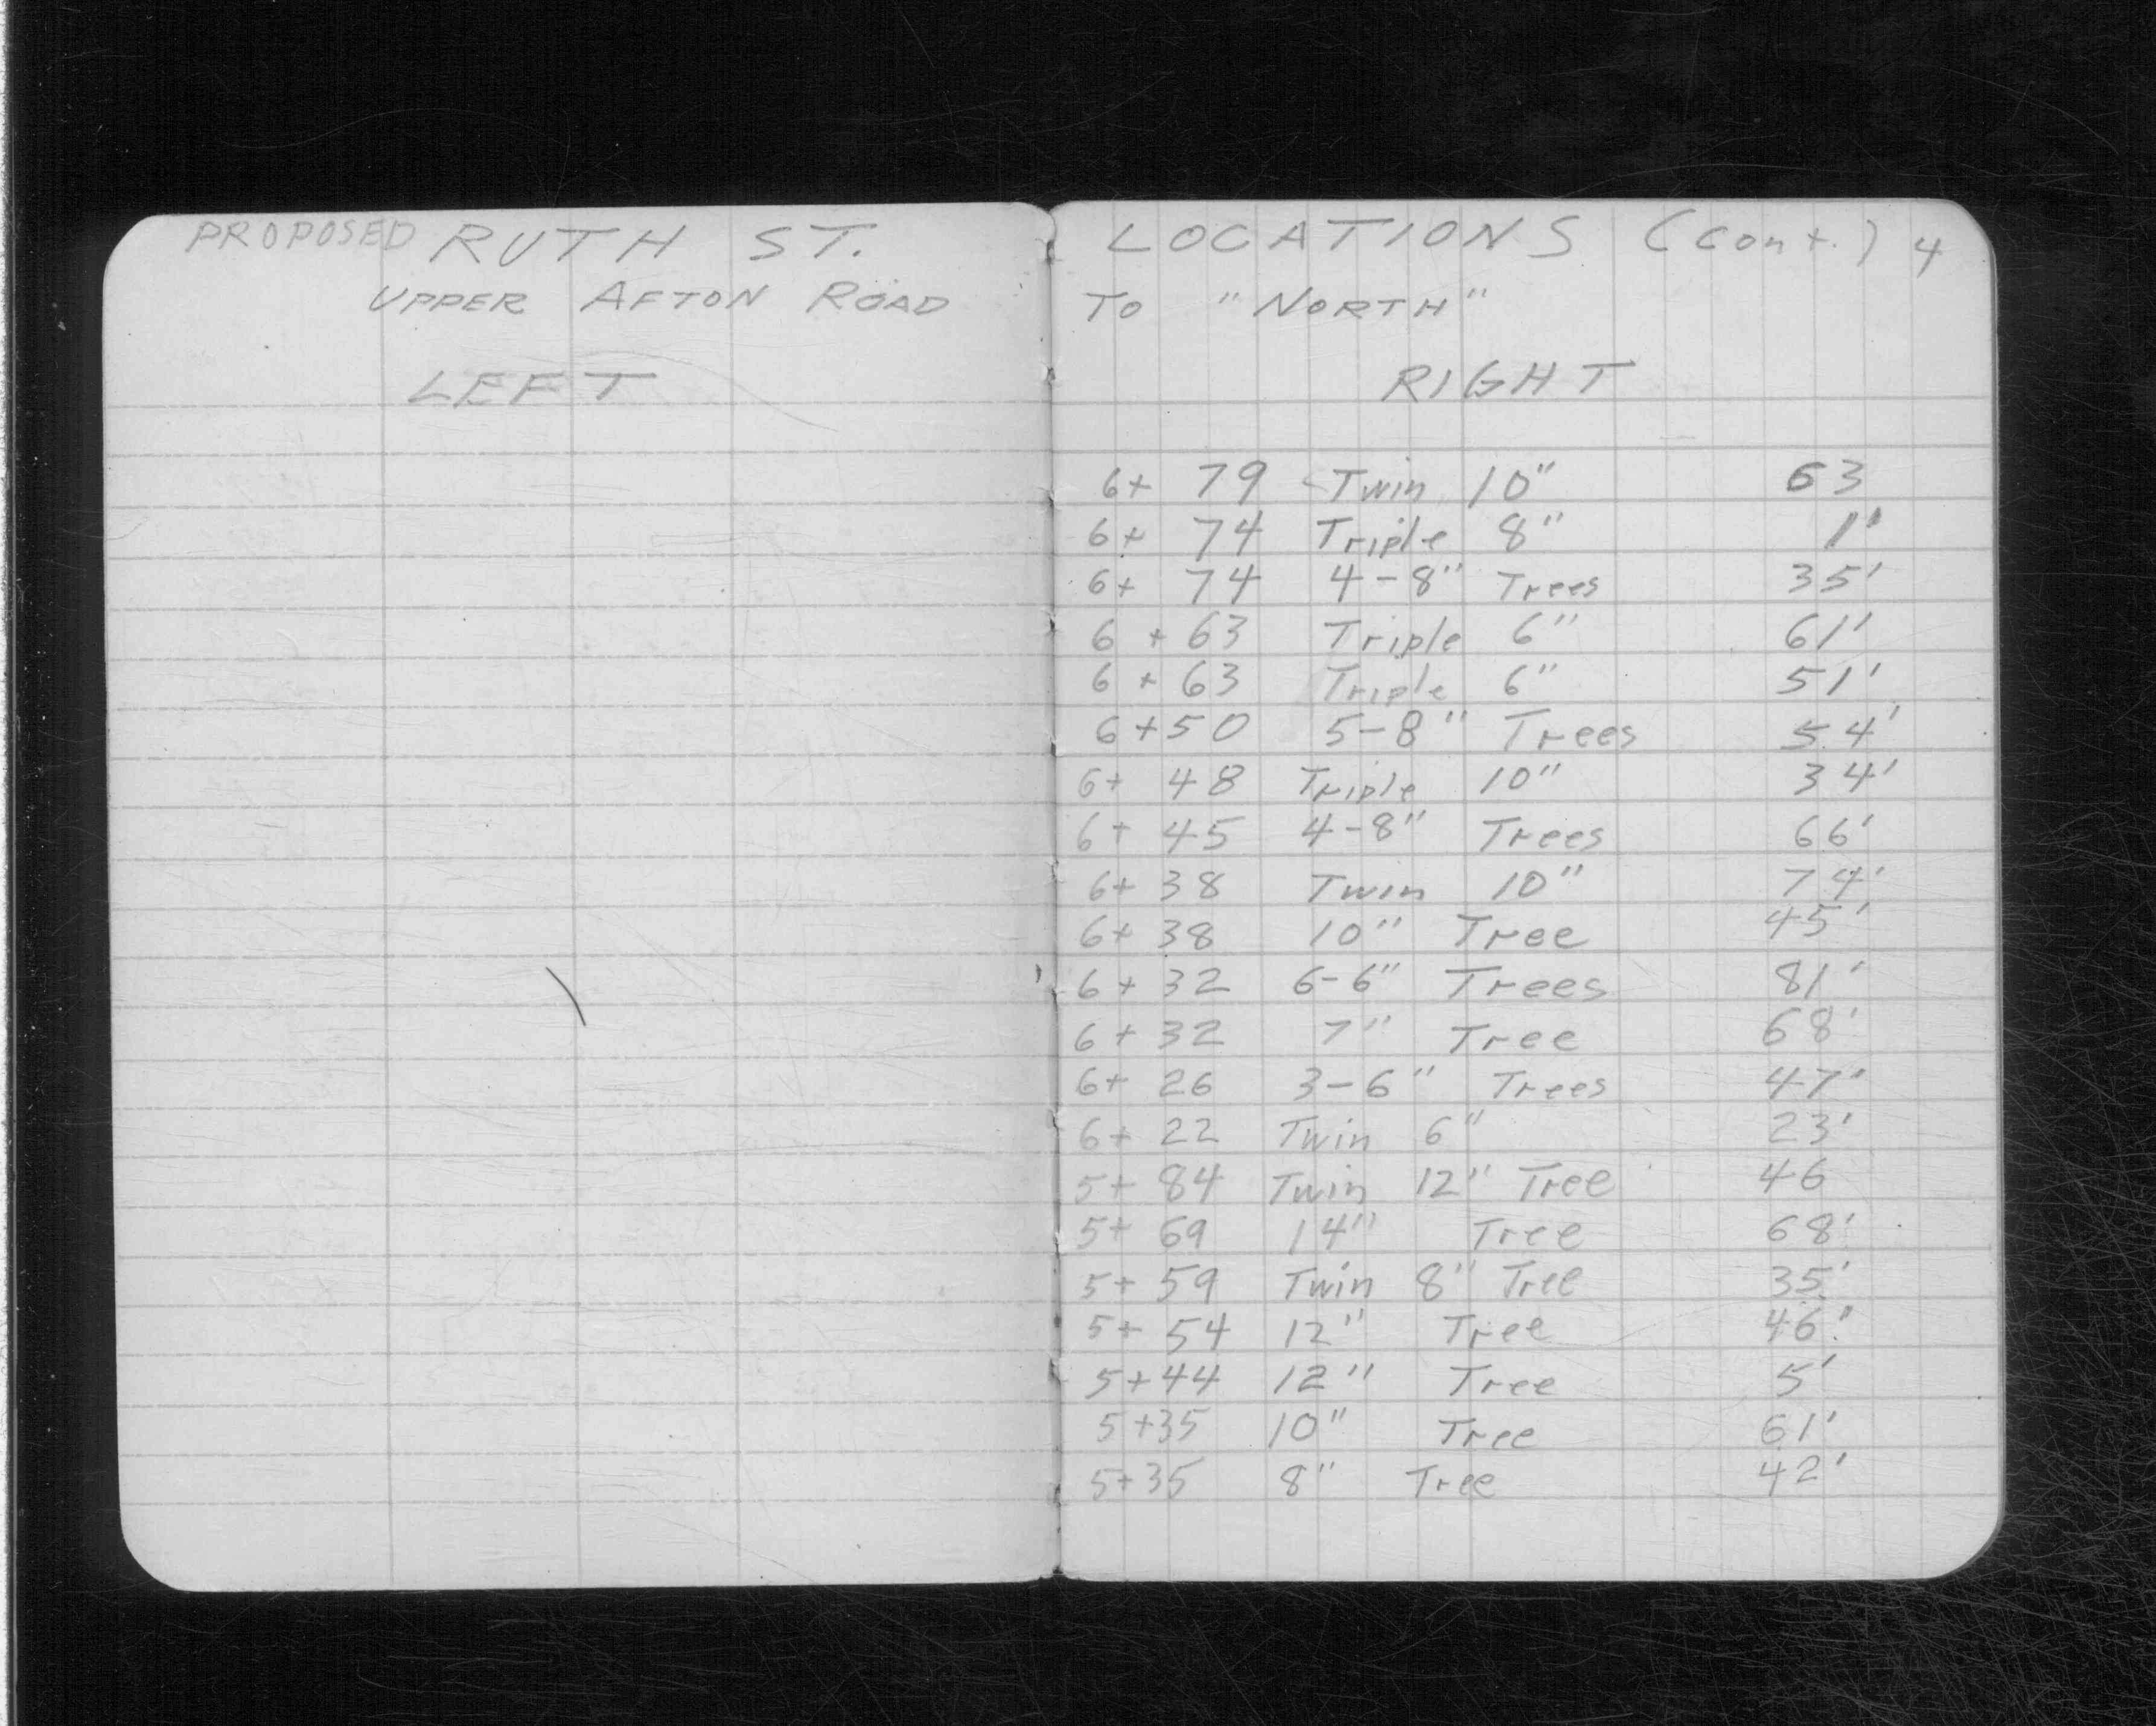 PROPOSED RUTH ST. LOCATIONS (Cont.) 4
UPPER AFTON ROAD TO "NORTH"
LEFT RIGHT
6+ 79 Twin 10" 63
6+ 74 Triple 8" 1'
6+ 74 4-8" Trees 35'
6 + 63 Triple 6" 61'
6 + 63 Triple 6" 51'
6+50 5-8" Trees 54'
6+ 48 Triple 10" 34'
6+ 45 4-8" Trees 66'
6+ 38 Twin 10" 74'
6+ 38 10" Tree 45'
6+ 32 6-6" Trees 81'
6+ 32 7" Tree 68'
6+ 26 3-6" Trees 47'
6+ 22 Twin 6" 23'
5+ 84 Twin 12" Tree 46
5+ 69 14" Tree 68'
5+ 59 Twin 8" Tree 35'
5+ 54 12" Tree 46'
5+44 12" Tree 5'
5+35 10" Tree 61'
5+35 8" Tree 42'